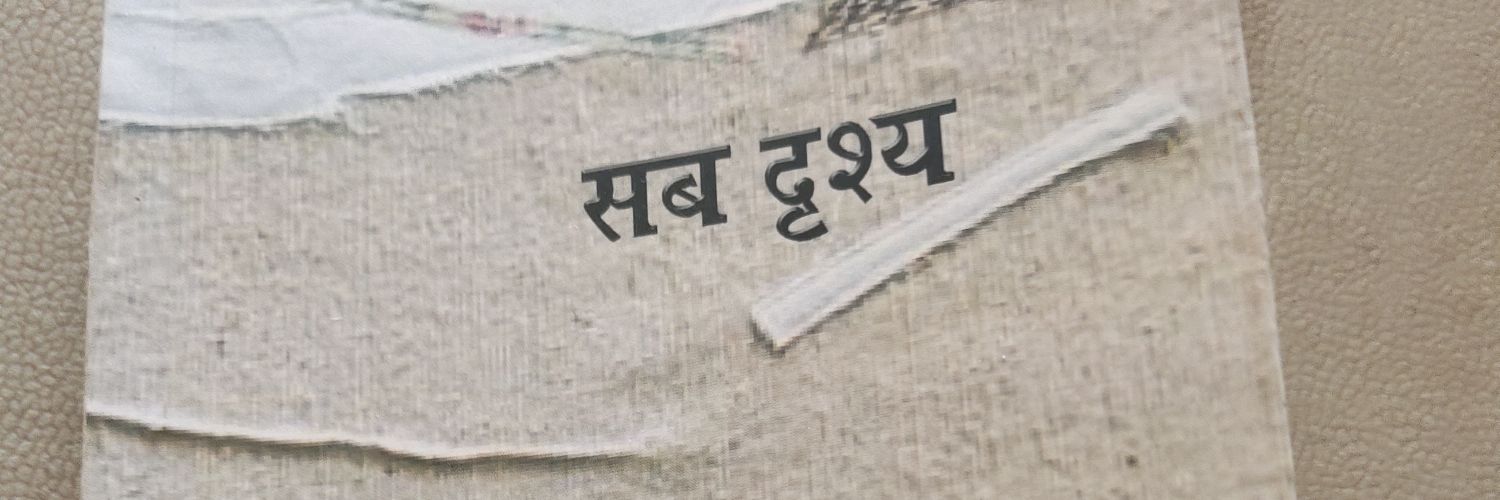 सब दृश्य